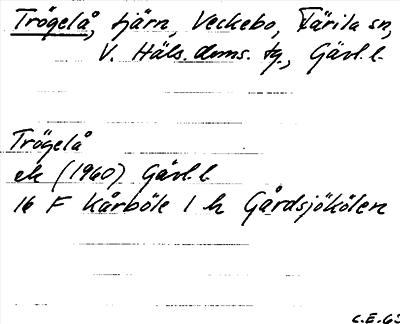 Trögelå, tjärn, Veckebo, Färila sn,
V. Häls. doms. tg., Gävl. l.
Trögelå
ek (1960) Gävl. l
16 F Kårböle 1 h Gårdsjökölen
C.E.63